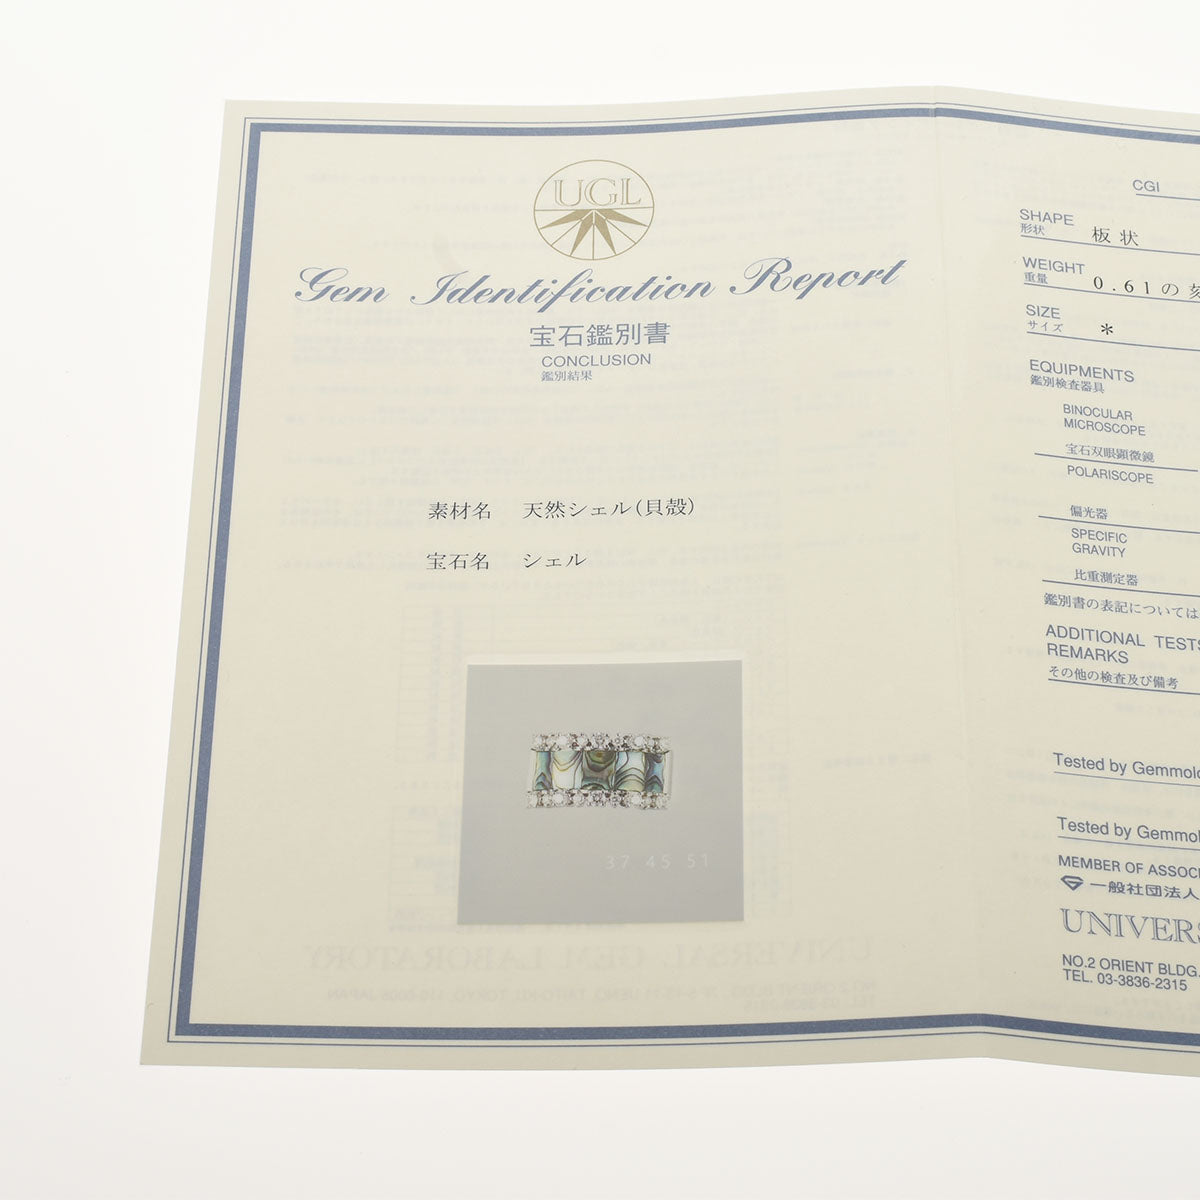 UGL
Gem Identification Report
宝石鑑別書
CONCLUSION
鑑別結果
素材名 天然シェル(貝殻)
宝石名 シェル
37 45 51
CGI
SHAPE
形状 板状
WEIGHT
重量 0.61の刻
SIZE
サイズ *
EQUIPMENTS
鑑別検査器具
BINOCULAR
MICROSCOPE
宝石双眼顕微鏡
POLARISCOPE
偏光器
SPECIFIC
GRAVITY
比重測定器
鑑別書の表記については
ADDITIONAL TESTS
REMARKS
その他の検査及び備考
Tested by Gemmolo
Tested by Gemmol
MEMBER OF ASSOCI
一般社団法人
UNIVERS
NO.2 ORIENT BLDG.
TEL. 03-3836-2315